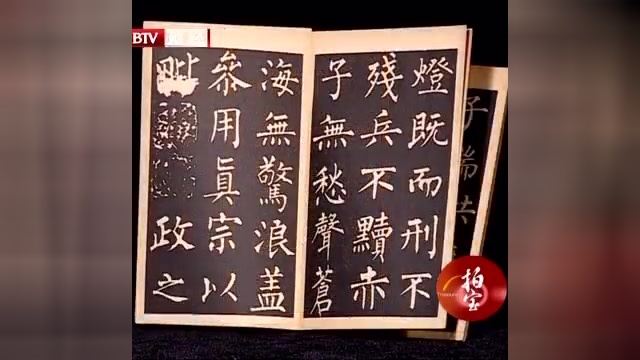 BTV
燈既而刑不
殘兵不黷赤
子無愁聲蒼
海無驚浪盖
叅用眞宗以
毗政之
子
拍宝